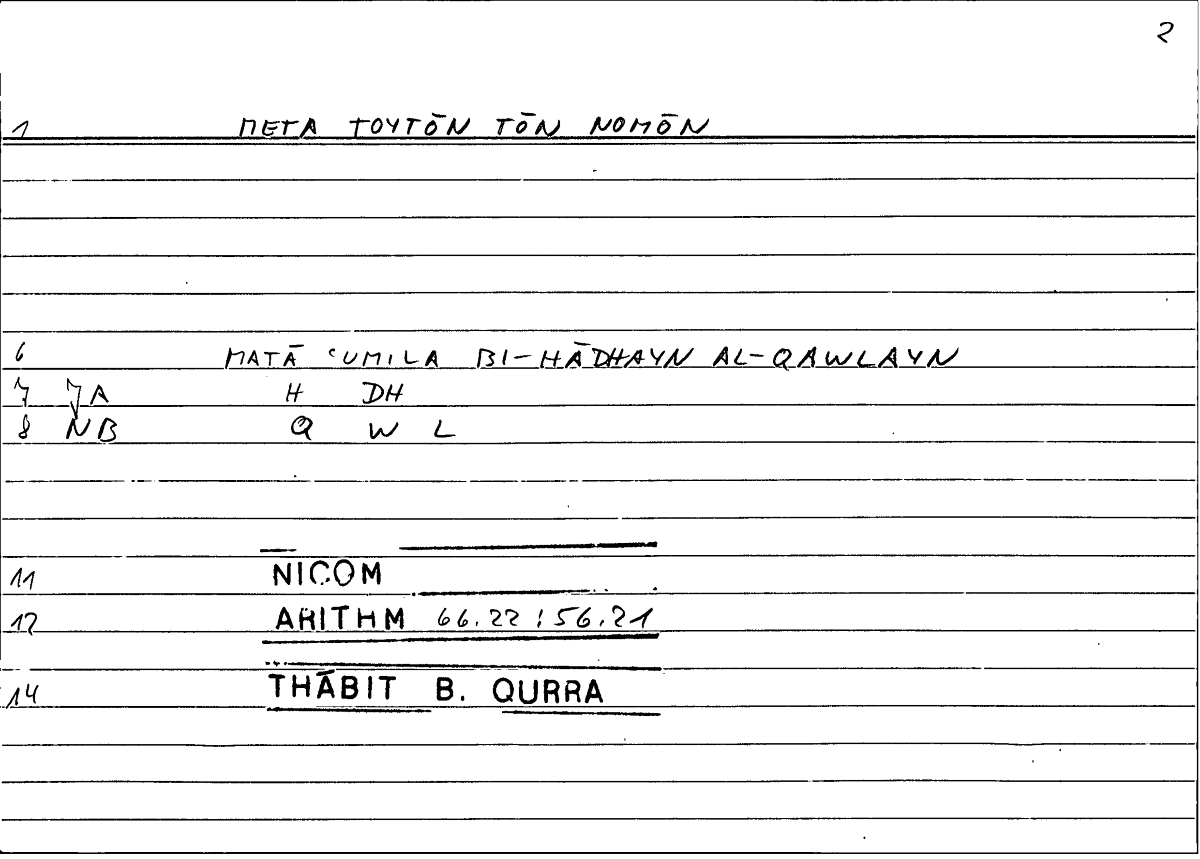 2
1 META TOYTŌN TŌN NOMŌN
6 MATĀ ʿUMILA BI-HĀDHAYN AL-QAWLAYN
7 JA H DH
8 NB Q W L
11 NICOM
12 ARITHM 66.22 ; 56.21
14 THĀBIT B. QURRA